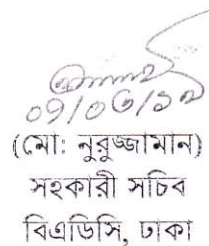 ০৭/০৩/১৯
(মো: নুরুজ্জামান)
সহকারী সচিব
বিএডিসি, ঢাকা